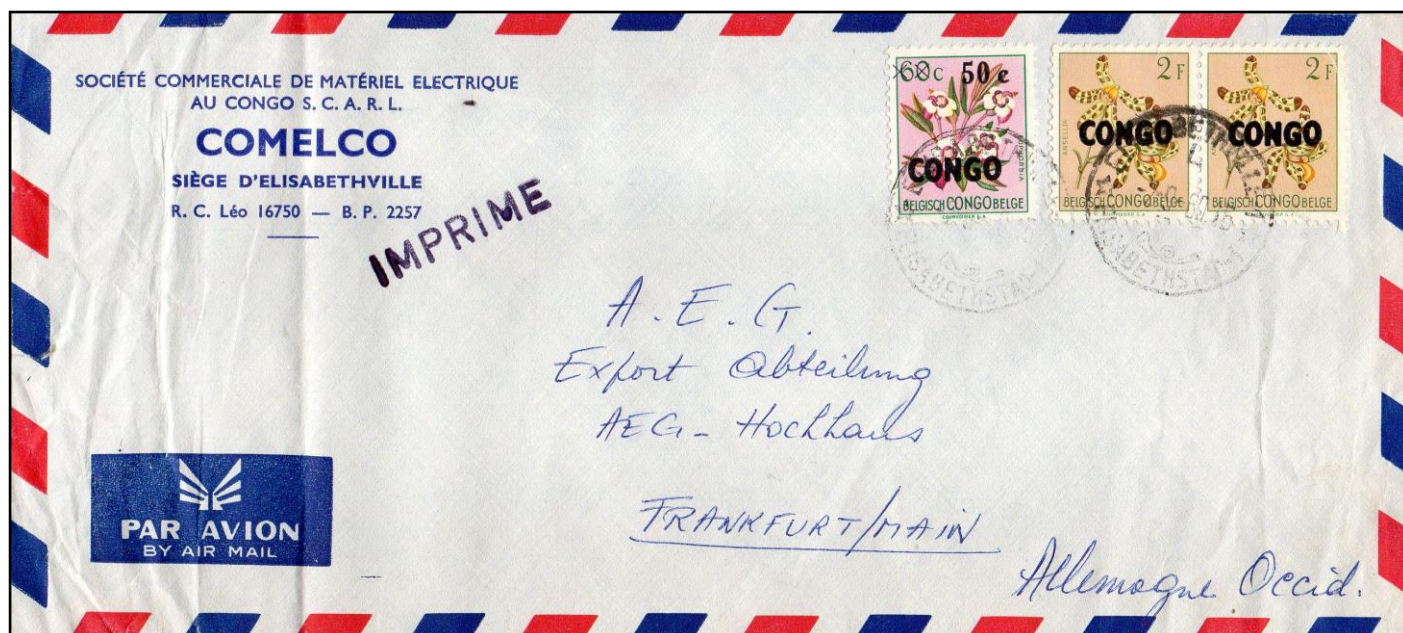 SOCIÉTÉ COMMERCIALE DE MATÉRIEL ELECTRIQUE
AU CONGO S. C. A. R. L.
COMELCO
SIÈGE D'ELISABETHVILLE
R. C. Léo 16750 — B. P. 2257
IMPRIME
60c 50c
CONGO
EUPHORBIA
BELGISCH CONGO BELGE
COURVOISIER S.A.
2F
ANSELLIA
CONGO
BELGISCH CONGO BELGE
COURVOISIER S.A.
2F
ANSELLIA
CONGO
BELGISCH CONGO BELGE
COURVOISIER S.A.
ELISABETHSTAD
ELISABETHSTAD
A. E. G.
Export Abteilung
AEG - Hochhaus
FRANKFURT/MAIN
Allemagne Occid.
PAR AVION
BY AIR MAIL